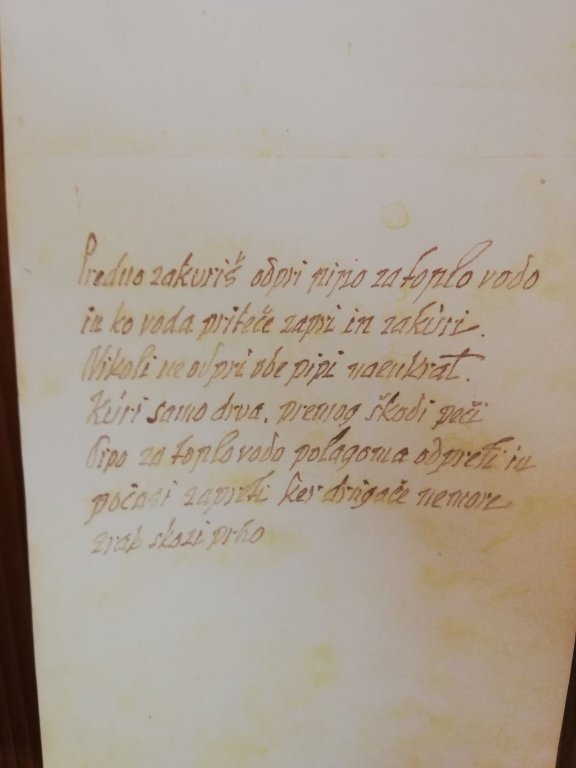 Predno zakuriš odpri pipo za toplo vodo
in ko voda priteče zapri in zakúri.
Nikoli ne odpri obe pipi naenkrat.
Kúri samo drva, premog škodi peči
Pipo za toplo vodo polagoma odpreti in
počasi zapreti ker drugače nemore
zrak skozi prho